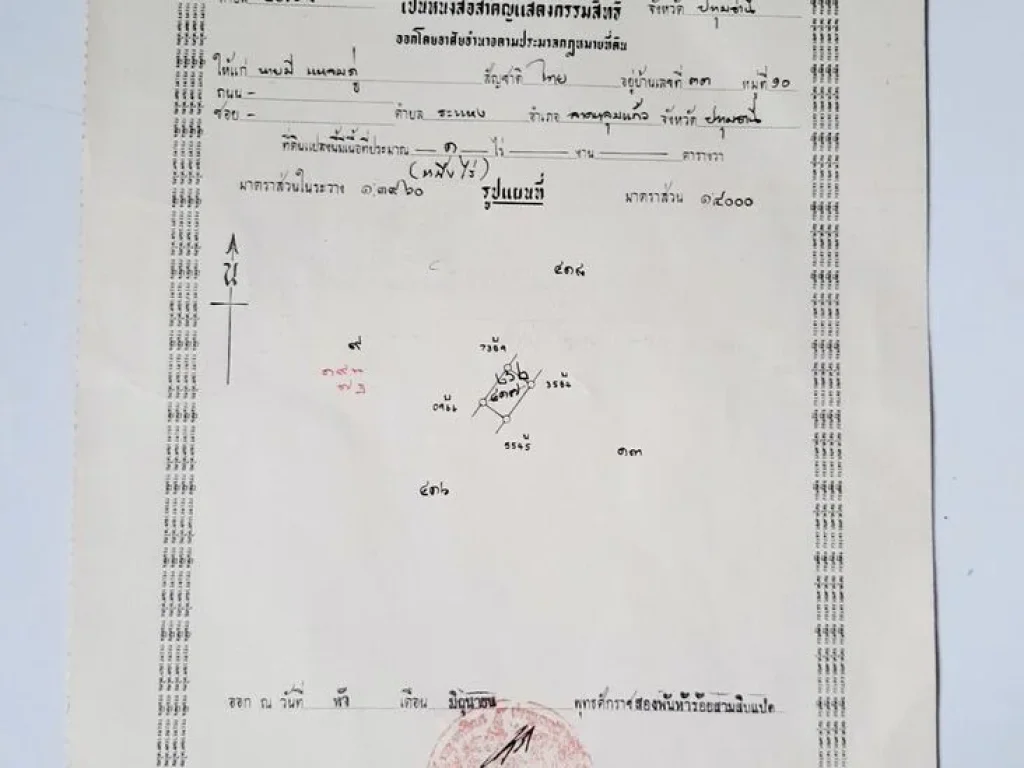 เป็นหนังสือสำคัญแสดงกรรมสิทธิ์ จังหวัด ปทุมธานี
ออกโดยอาศัยอำนาจตามประมวลกฎหมายที่ดิน
ให้แก่ นายมี สัญชาติ ไทย อยู่บ้านเลขที่ ๓๓ หมู่ที่ ๑๐
ถนน -
ซอย - ตำบล ระแหง อำเภอ ลาดหลุมแก้ว จังหวัด ปทุมธานี
ที่ดินแปลงนี้มีเนื้อที่ประมาณ ๑ ไร่ — งาน — ตารางวา
(หนึ่งไร่)
มาตราส่วนในระวาง ๑:๓๙๖๐ รูปแผนที่ มาตราส่วน ๑:๔๐๐๐
น
๔๑๘
๙
๔๑๗
๑๓
๔๑๖
ออก ณ วันที่ ห้า เดือน มิถุนายน พุทธศักราช สองพันห้าร้อยสามสิบแปด